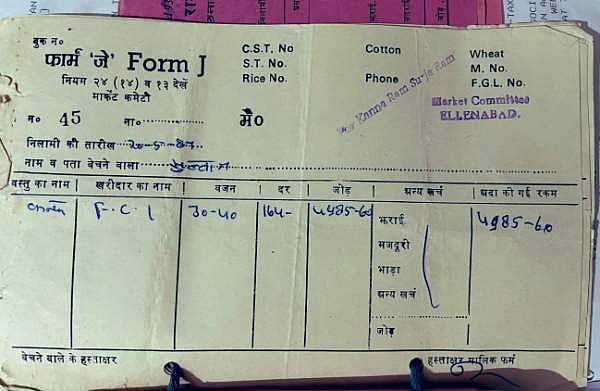 बुक न०
फार्म 'जे' Form J
नियम २४ (१४) व १३ देखें
मार्केट कमेटी
C.S.T. No
S.T. No.
Rice No.
Cotton
Phone
Wheat
M. No.
F.G.L. No.
Kanna Ram Surja Ram
Market Committee
ELLENABAD.
न० 45 ता० मै०
निलामी की तारीख 20-5-87
नाम व पता बेचने वाला
वस्तु का नाम खरीदार का नाम वजन दर जोड़ अन्य खर्च अदा की गई रकम
F.C.I 30-40 164- 4985-60 4985-60
भराई
मजदूरी
भाड़ा
अन्य खर्च
जोड़
बेचने वाले के हस्ताक्षर हस्ताक्षर मालिक फर्म